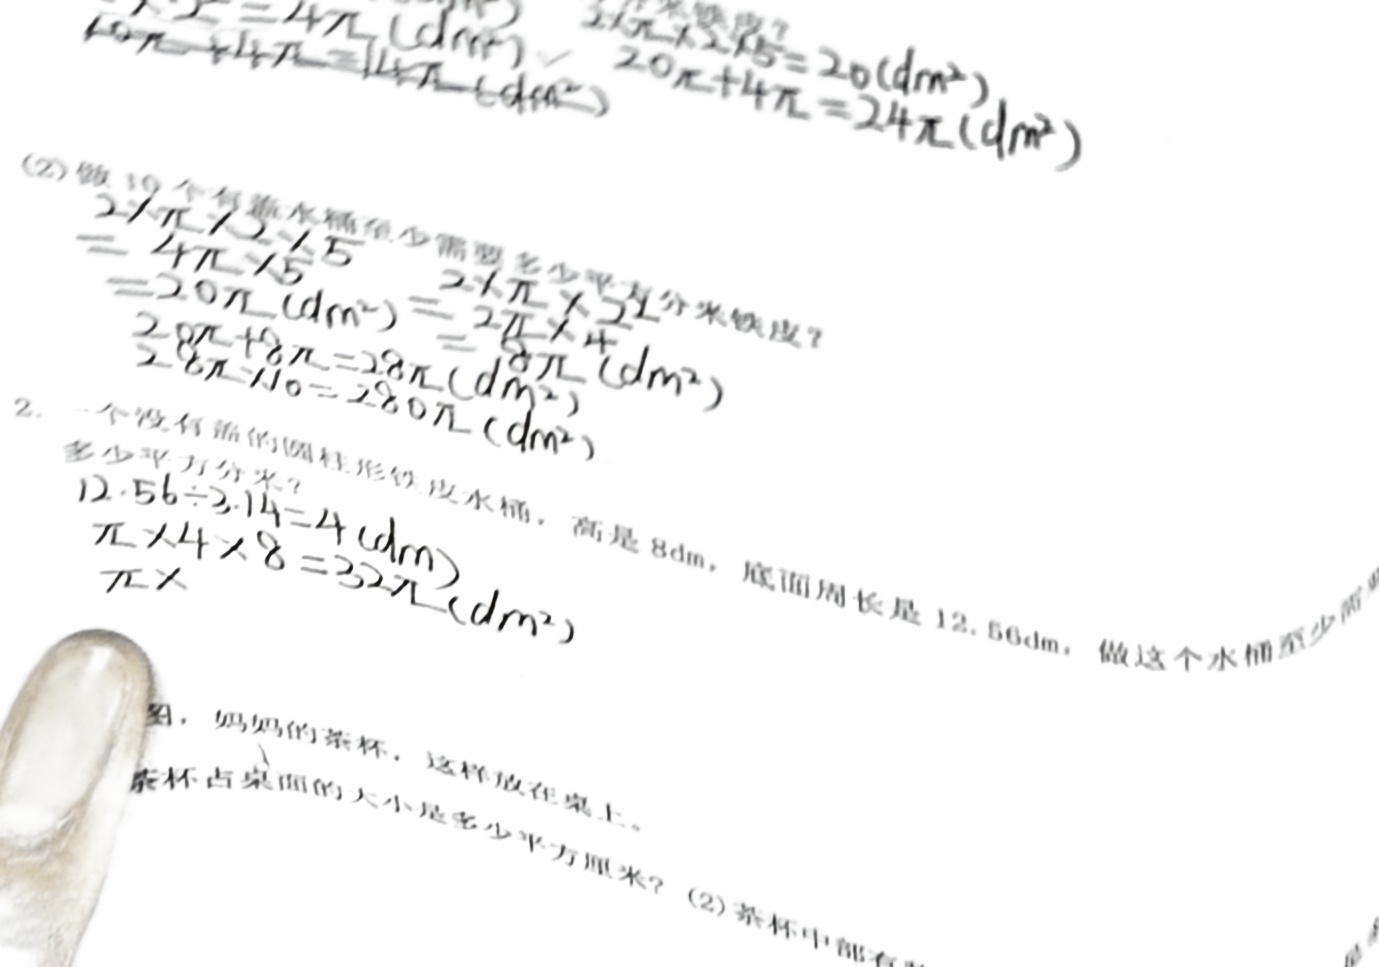 =4π(dm²)
10π+4π=14π(dm²)
2×π×2×5=20(dm²)
20π+4π=24π(dm²)
(2)做10个有盖水桶至少需要多少平方分米铁皮?
2×π×2×5
=4π×5
=20π(dm²)
2×π×2²
=2π×4
=8π(dm²)
20π+8π=28π(dm²)
28π×10=280π(dm²)
2. 一个没有盖的圆柱形铁皮水桶,高是8dm,底面周长是12.56dm,做这个水桶至少需要
多少平方分米?
12.56÷3.14=4(dm)
π×4×8=32π(dm²)
π×
图,妈妈的茶杯,这样放在桌上。
茶杯占桌面的大小是多少平方厘米?(2)茶杯中部有